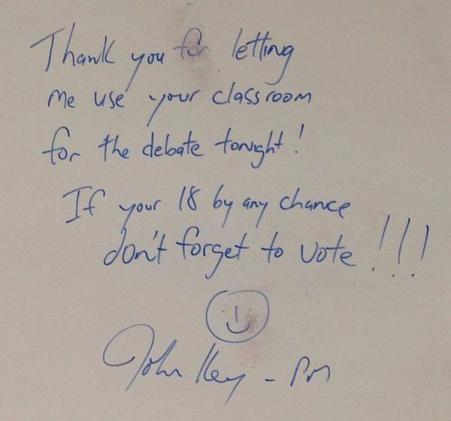 Thank you for letting
me use your classroom
for the debate tonight!
If your 18 by any chance
don't forget to vote!!!
John Key - PM